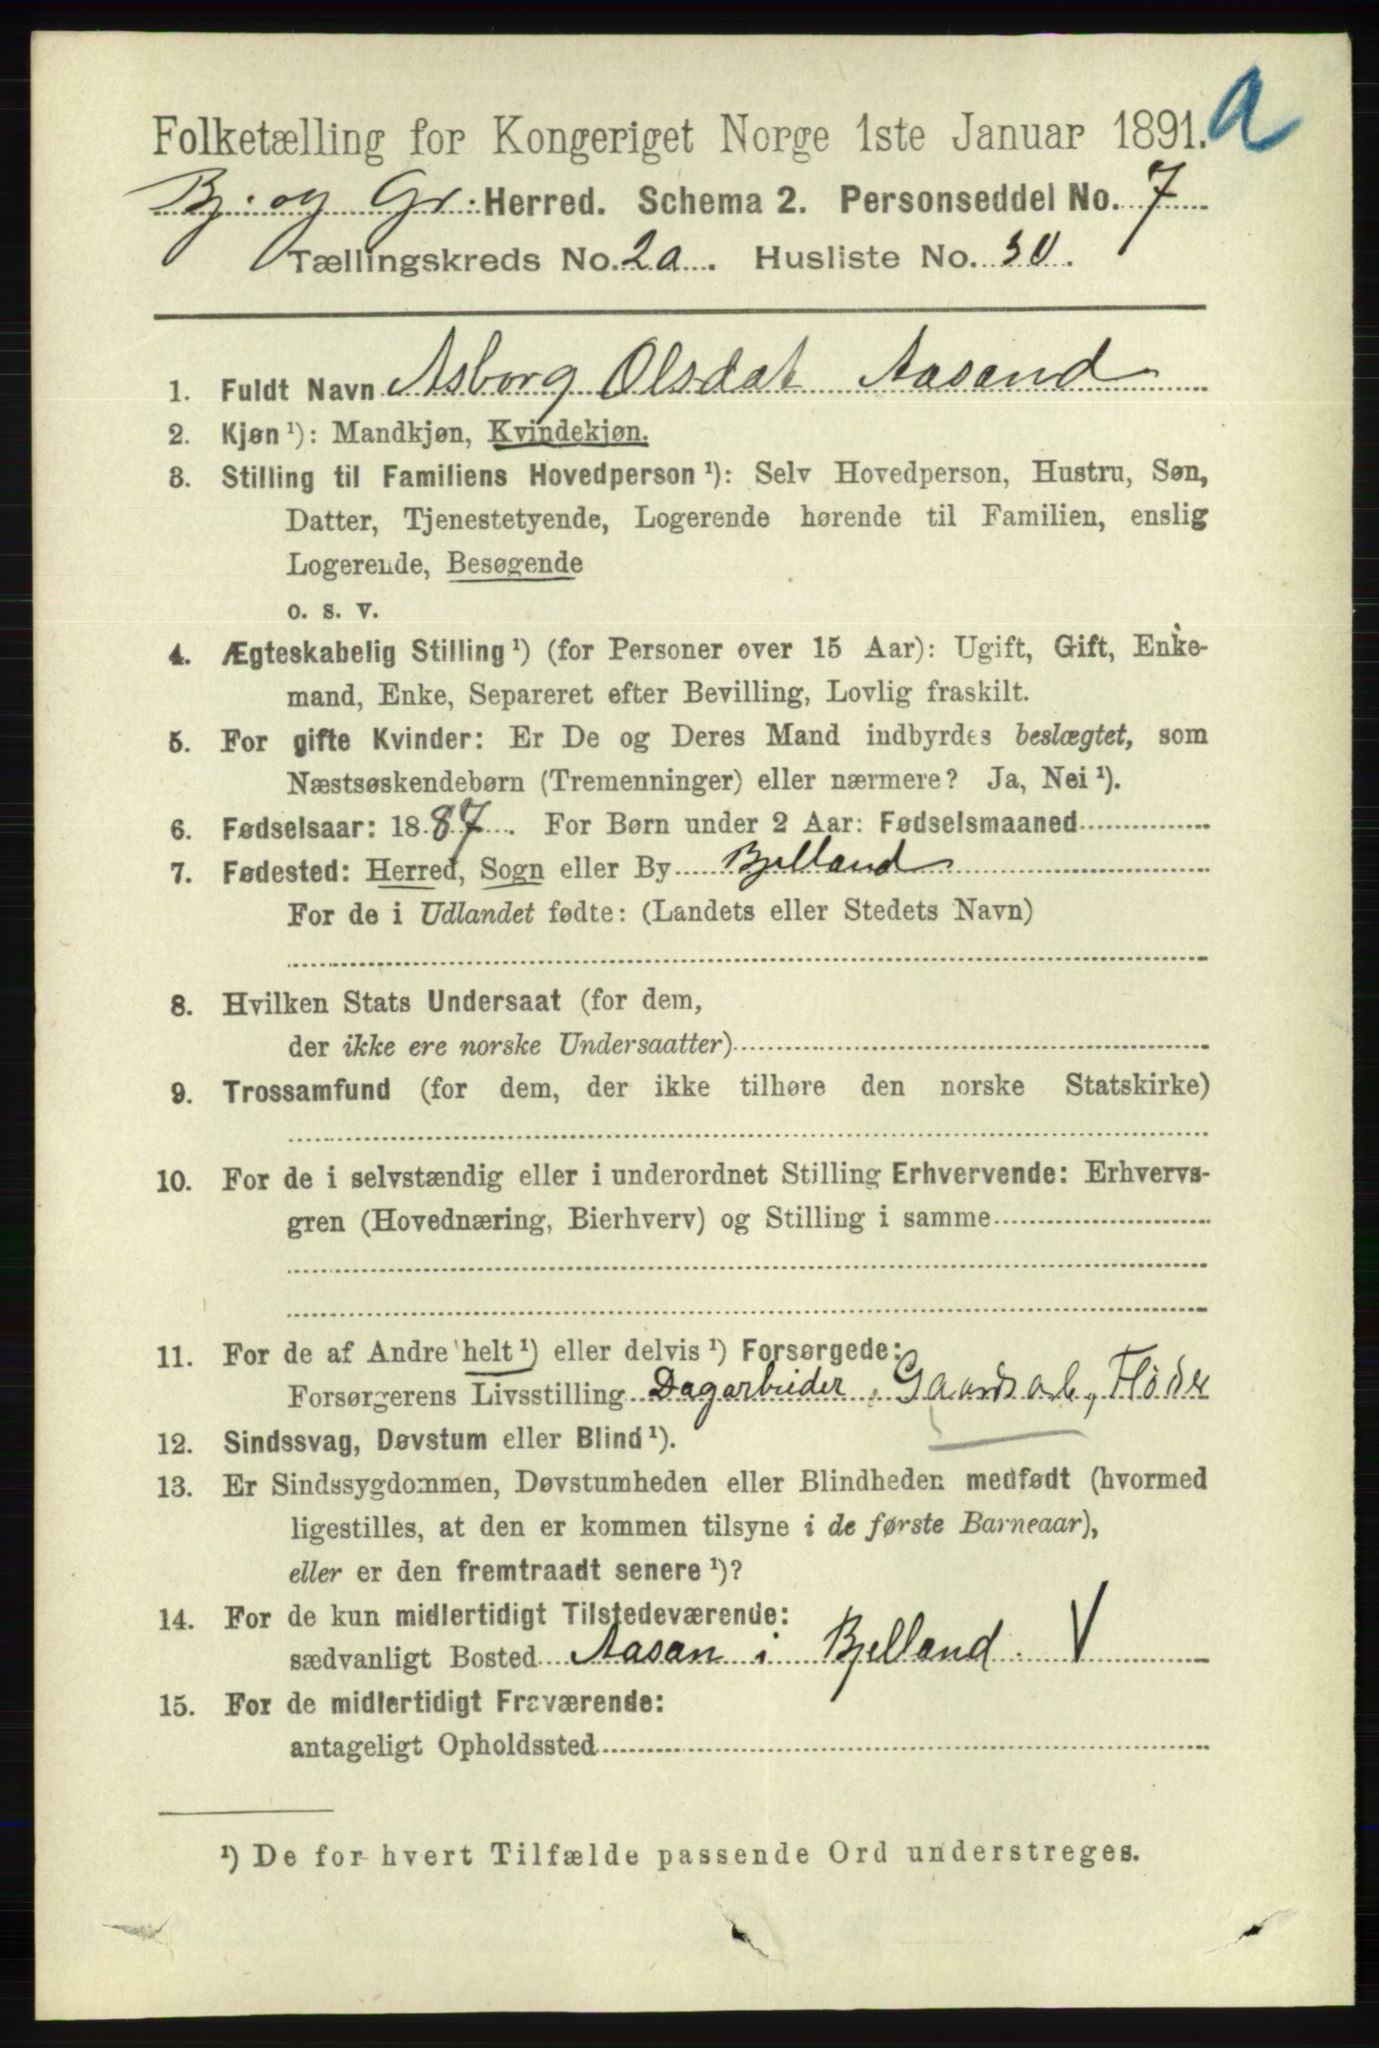 a
Folketælling for Kongeriget Norge 1ste Januar 1891.
Bj. og Gr. Herred. Schema 2. Personseddel No. 7
Tællingskreds No. 2a. Husliste No. 30.
1. Fuldt Navn Asborg Olsdat Aasand
2. Kjøn ¹): Mandkjøn, Kvindekjøn.
3. Stilling til Familiens Hovedperson ¹): Selv Hovedperson, Hustru, Søn,
Datter, Tjenestetyende, Logerende hørende til Familien, enslig
Logerende, Besøgende
o. s. v.
4. Ægteskabelig Stilling ¹) (for Personer over 15 Aar): Ugift, Gift, Enke-
mand, Enke, Separeret efter Bevilling, Lovlig fraskilt.
5. For gifte Kvinder: Er De og Deres Mand indbyrdes beslægtet, som
Næstsøskendebørn (Tremenninger) eller nærmere? Ja, Nei ¹).
6. Fødselsaar: 1887. For Børn under 2 Aar: Fødselsmaaned
7. Fødested: Herred, Sogn eller By Bjelland
For de i Udlandet fødte: (Landets eller Stedets Navn)
8. Hvilken Stats Undersaat (for dem,
der ikke ere norske Undersaatter)
9. Trossamfund (for dem, der ikke tilhøre den norske Statskirke)
10. For de i selvstændig eller i underordnet Stilling Erhvervende: Erhvervs-
gren (Hovednæring, Bierhverv) og Stilling i samme
11. For de af Andre helt ¹) eller delvis ¹) Forsørgede:
Forsørgerens Livsstilling Dagarbeider, Gaardsarb, Fløder
12. Sindssvag, Døvstum eller Blind ¹).
13. Er Sindssygdommen, Døvstumheden eller Blindheden medfødt (hvormed
ligestilles, at den er kommen tilsyne i de første Barneaar),
eller er den fremtraadt senere ¹)?
14. For de kun midlertidigt Tilstedeværende:
sædvanligt Bosted Aasan i Bjelland. V
15. For de midlertidigt Fraværende:
antageligt Opholdssted
¹) De for hvert Tilfælde passende Ord understreges.